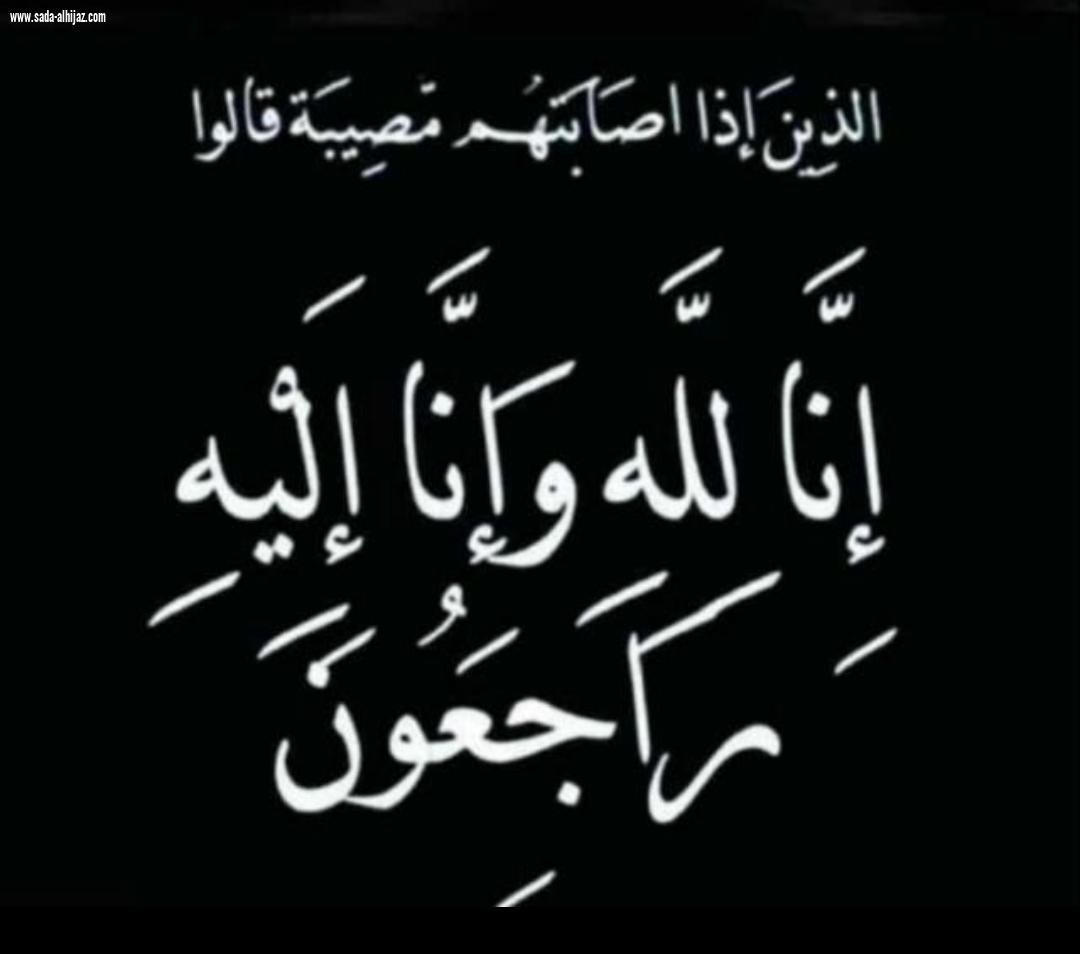 www.sada-alhijaz.com
الذِينَ إِذا اصَابَتهُم مّصِيبَة قالوا
إِنَّا للَّه وَإِنَّا إِليْهِ
رَاجَعُونَ